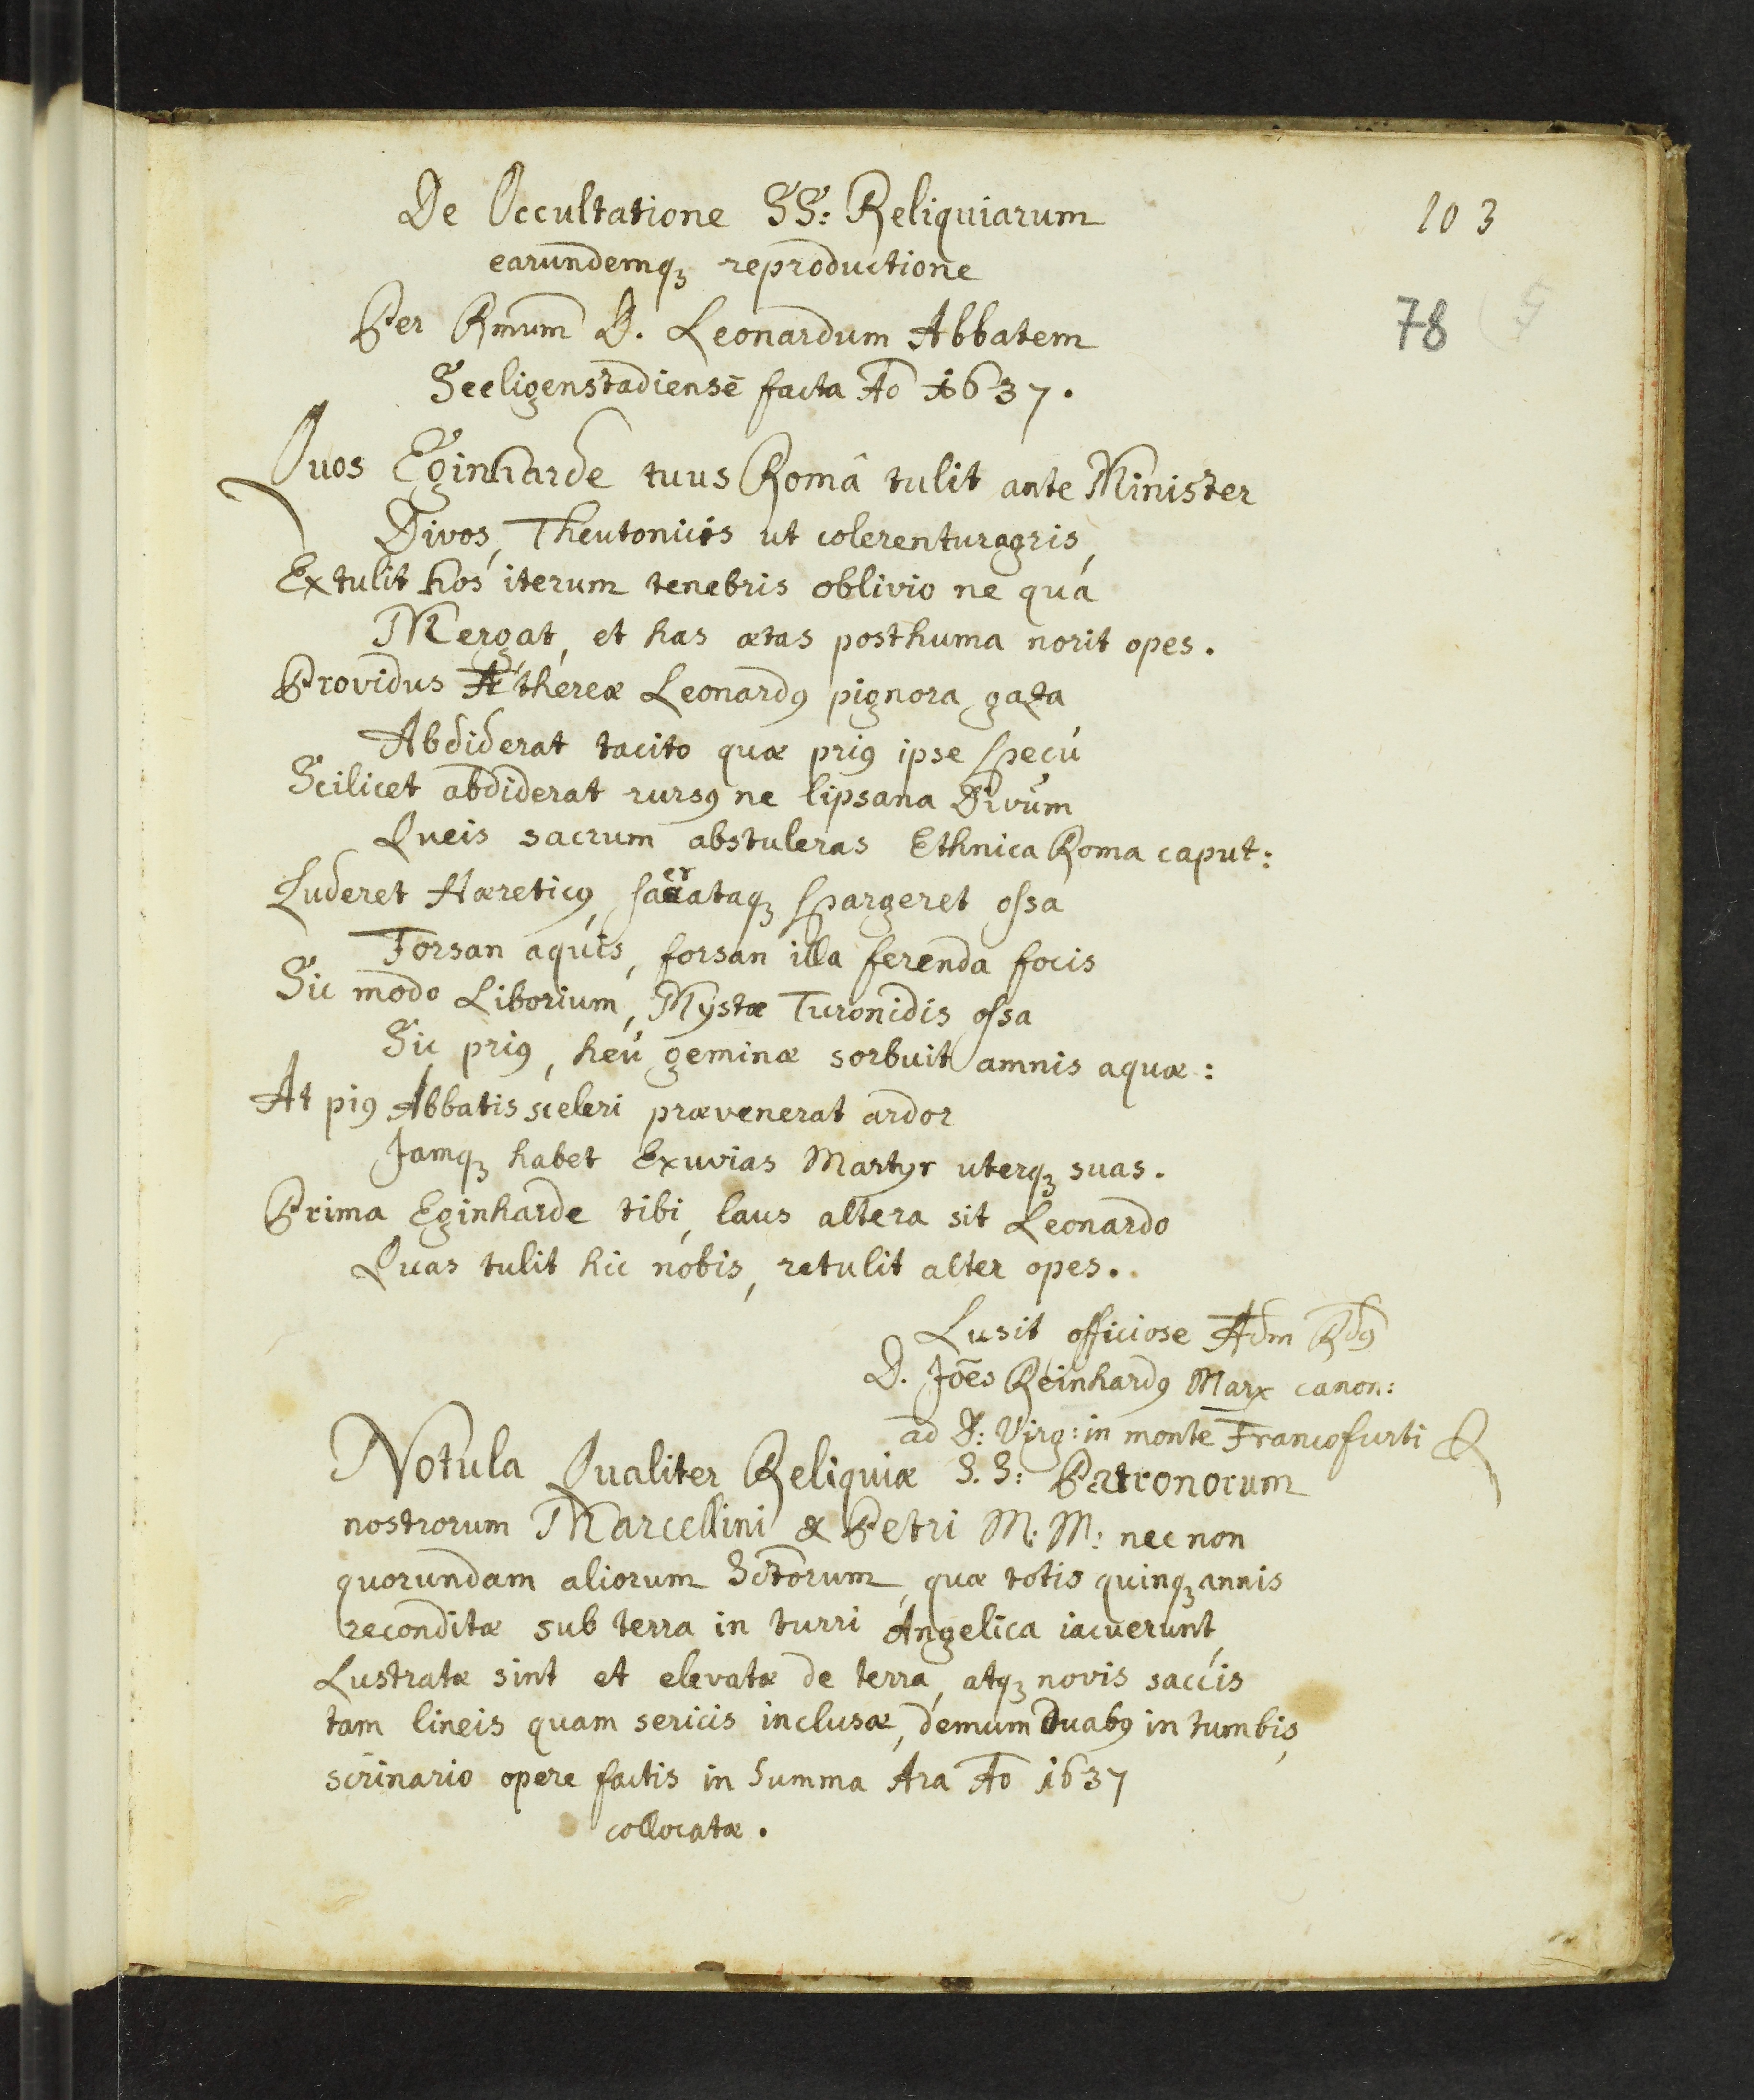 De Occultatione SS: Reliquiarum
103
earundemqꝫ reproductione
Per Rm̄um D. Leonardum Abbatem
78
Seeligenstadiensē facta Ao 1637.
Quos Eginharde tuus Româ tulit ante Minister
Divos, Theutonicis ut colerentur agris,
Extulit hos iterum tenebris oblivio ne quá
Mergat, et has ætas posthuma norit opes.
Providus Æthereæ Leonardꝰ pignora gaza
Abdiderat tacito quæ priꝰ ipse specú
Scilicet abdiderat rursꝰ ne lipsana Divúm
Queis sacrum abstuleras Ethnica Roma caput:
Luderet Hæreticꝰ, sacrataqꝫ spargeret ossa
Forsan aquis, forsan illa ferenda focis
Sic modo Liborium, Mystæ Turonidis ossa
Sic priꝰ, heú geminæ sorbuit amnis aquæ:
At piꝰ Abbatis sceleri prævenerat ardor
Jamqꝫ habet Exuvias Martyr uterqꝫ suas.
Prima Eginharde tibi, laus altera sit Leonardo
Quas tulit hic nobis, retulit alter opes.
Lusit officiose Adm Rdꝰ
D. Joēs Reinhardꝰ Marx canon:
ad B: Virg: in monte Francofurti
Notula Qualiter Reliquiæ S.S: Patronorum
nostrorum Marcellini & Petri M: M: nec non
quorundam aliorum Sctorum, quæ totis quinqꝫ annis
reconditæ sub terra in turri Angelica iacuerunt,
Lustratæ sint et elevatæ de terra, atqꝫ novis saccis
tam lineis quam sericis inclusæ, demum duabꝰ in tumbis,
scrinario opere factis in Summa Ara Ao 1637
collocatæ.